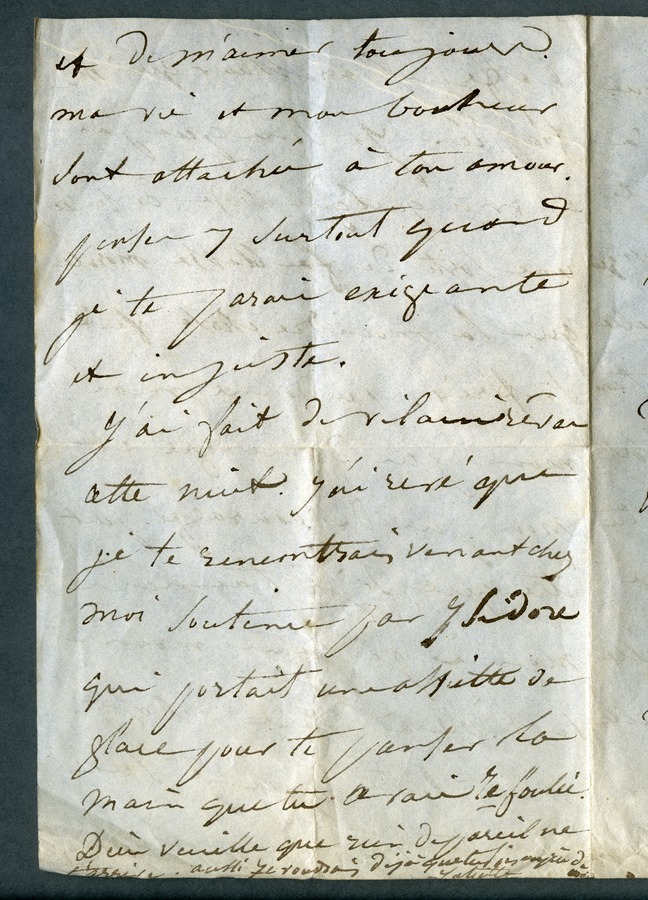 et de m'aimer toujours.
ma vie et mon bonheur
sont attachée à ton amour.
penses y surtout quand
je te parais exigeante
et injuste.
J'ai fait de vilains rêves
cette nuit. J'ai revé que
je te rencontrais venant chez
moi soutenu par Ysidore
qui portait une assiette de
glace pour te panser la
main que tu avais
Dieu veuille que rien de pareil ne
aussi je voudrais déjà que tu fusses auprès de
Juliette